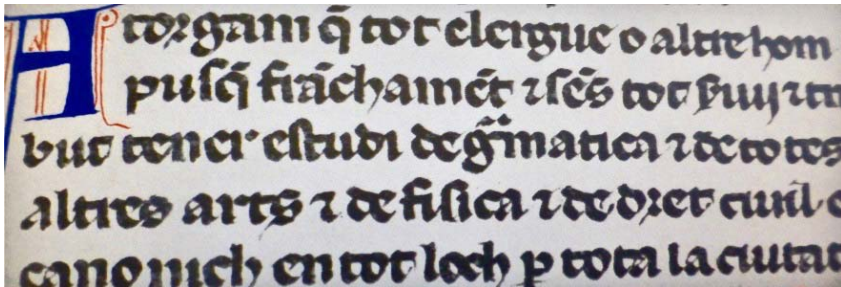 Atorgam q̄ tot clergue o altre hom
pusq̄ frāchamēt ⁊ sēs tot ẜuij ⁊ tri
but tener estudi de gͣmatica ⁊ de totes
altres arts ⁊ de fisica ⁊ de dret ciuil e
canonich en tot loch ꝑ tota la ciutat